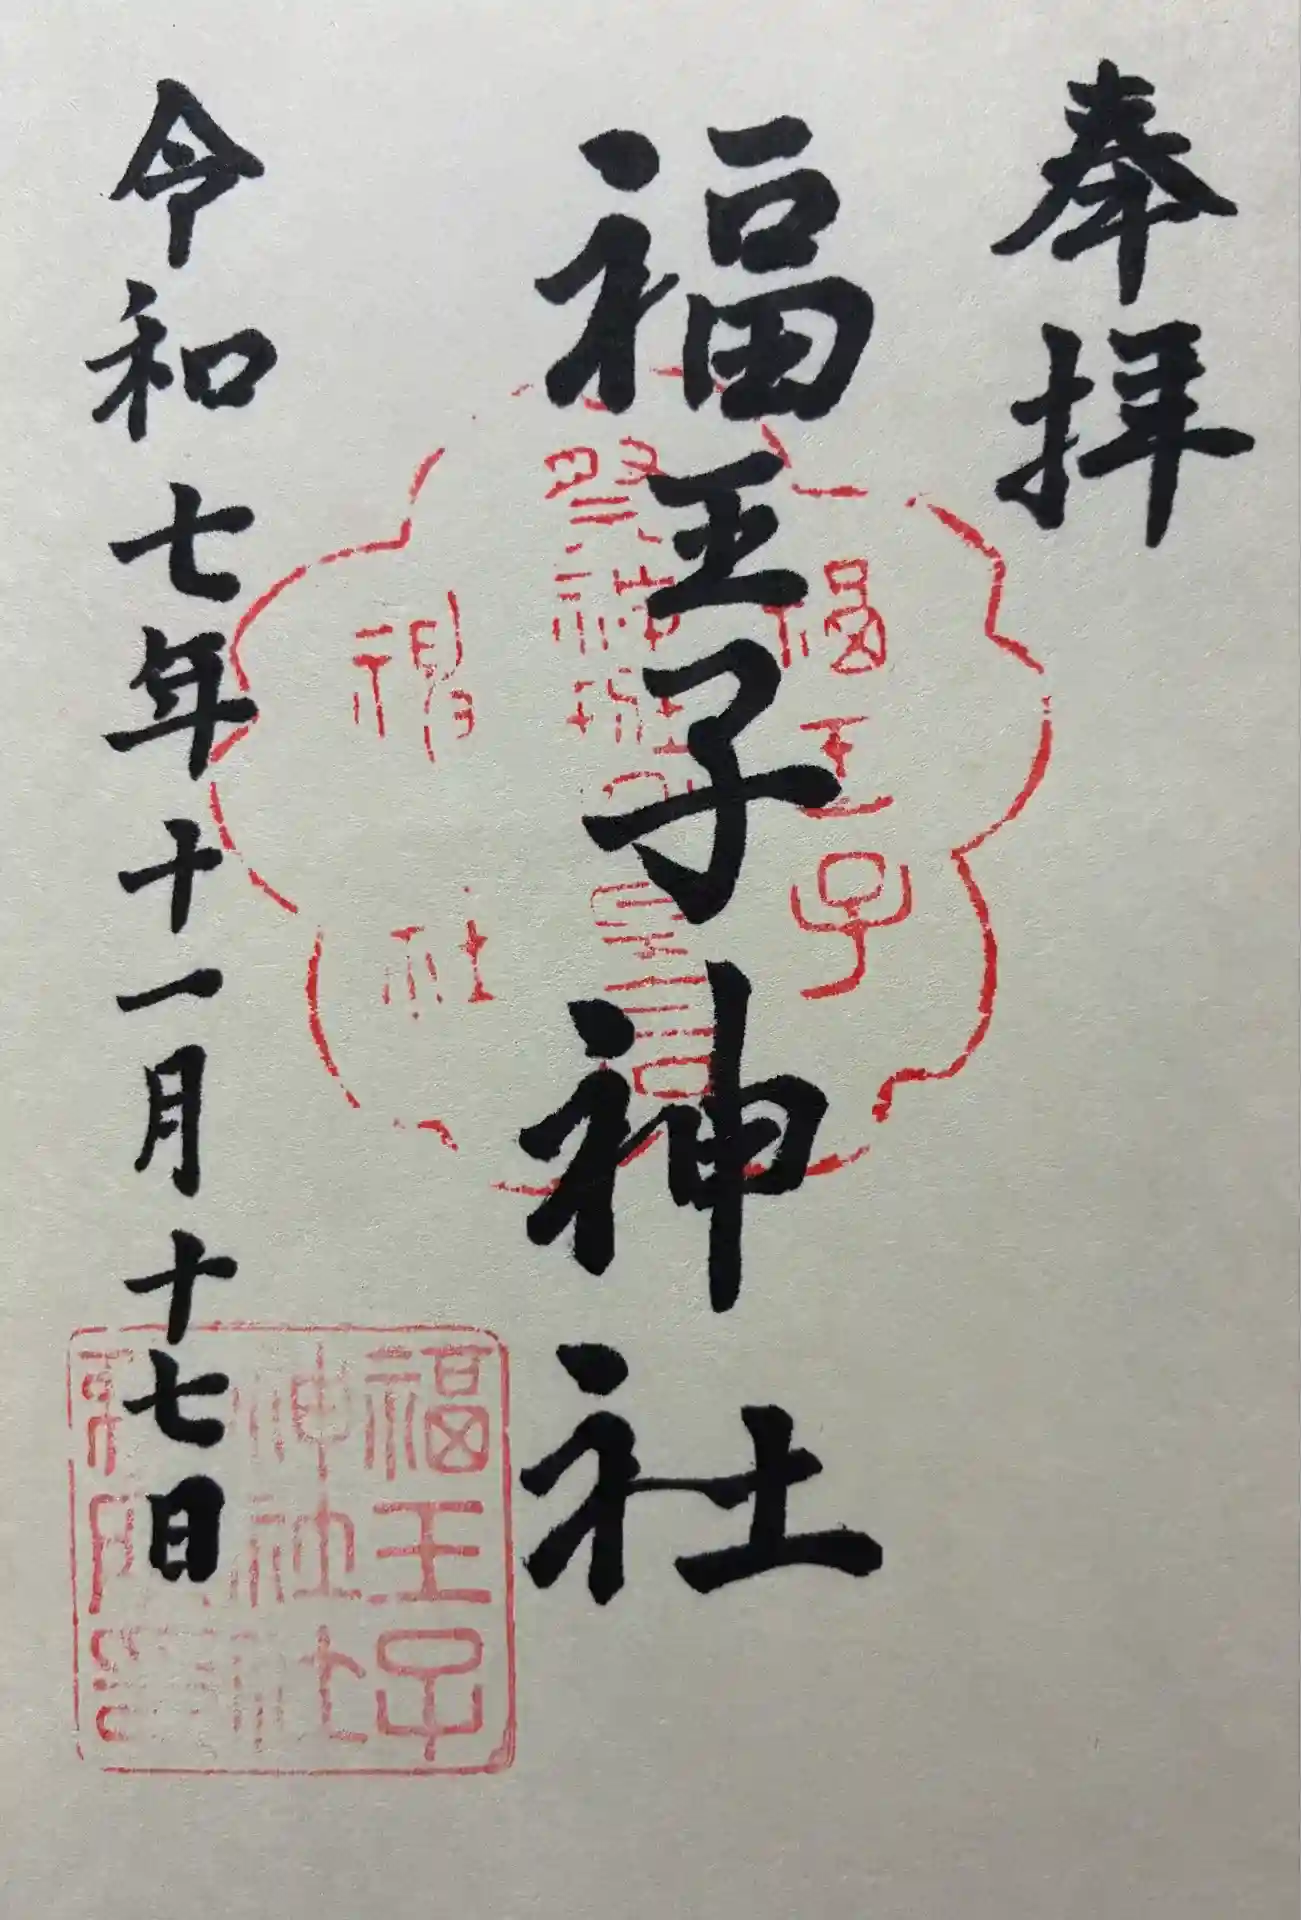 奉拝
福王子神社
令和七年十一月十七日
福王子
神社
福王子
神社